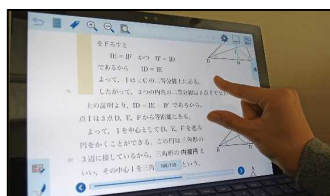 をFとすと
IE = IF かつ IF = ID
であるから ID = IE
よって，Iは∠Cの二等分線上にある。
したがって，3つの内角の二等分線は1点Iで交
上の証明より，ID = IE = IF であるから，
点Iは3点D，E，Fから等距離にある。
よって，Iを中心としてD，E，Fを通る
円をかくことができる。この円は三角形の
3辺に接しているから，三角形の内接円と
いい，その中心Iを三角
という。
B
D
B